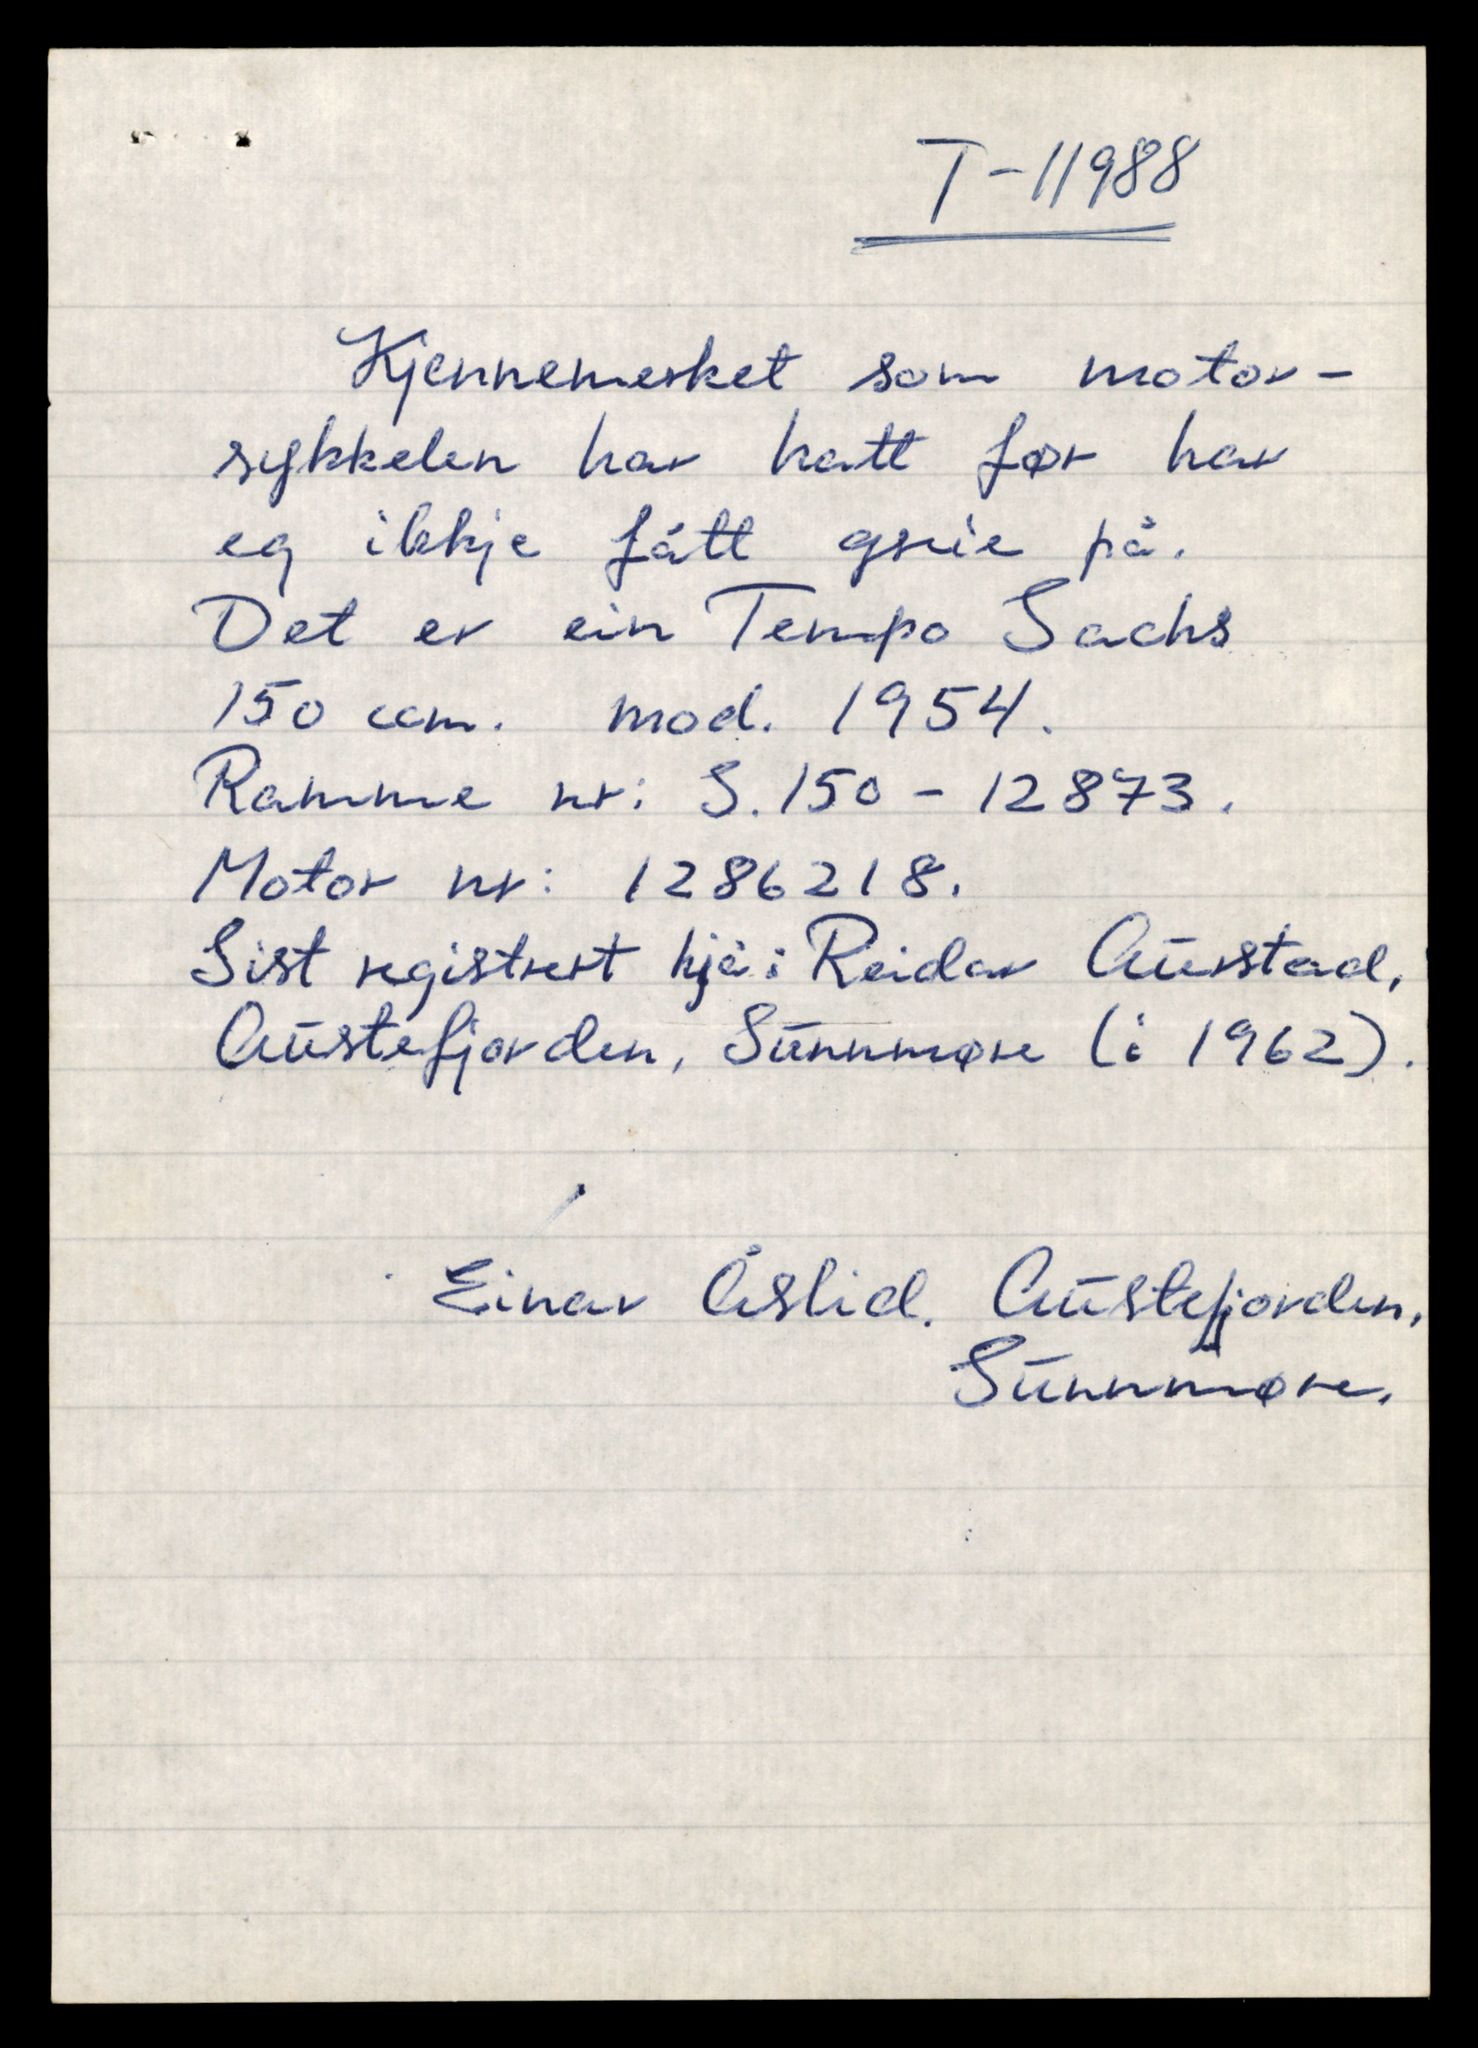 T-11988
Kjennemerket som motor-
sykkelen har hatt før har
eg ikkje fått greie på.
Det er ein Tempo Sachs
150 ccm. mod. 1954.
Ramme nr: S.150-12873.
Motor nr: 1286218.
Sist registrert hjå: Reidar Aurstad,
Austefjorden, Sunnmøre (i 1962).
Einar Åslid. Austefjorden,
Sunnmøre.